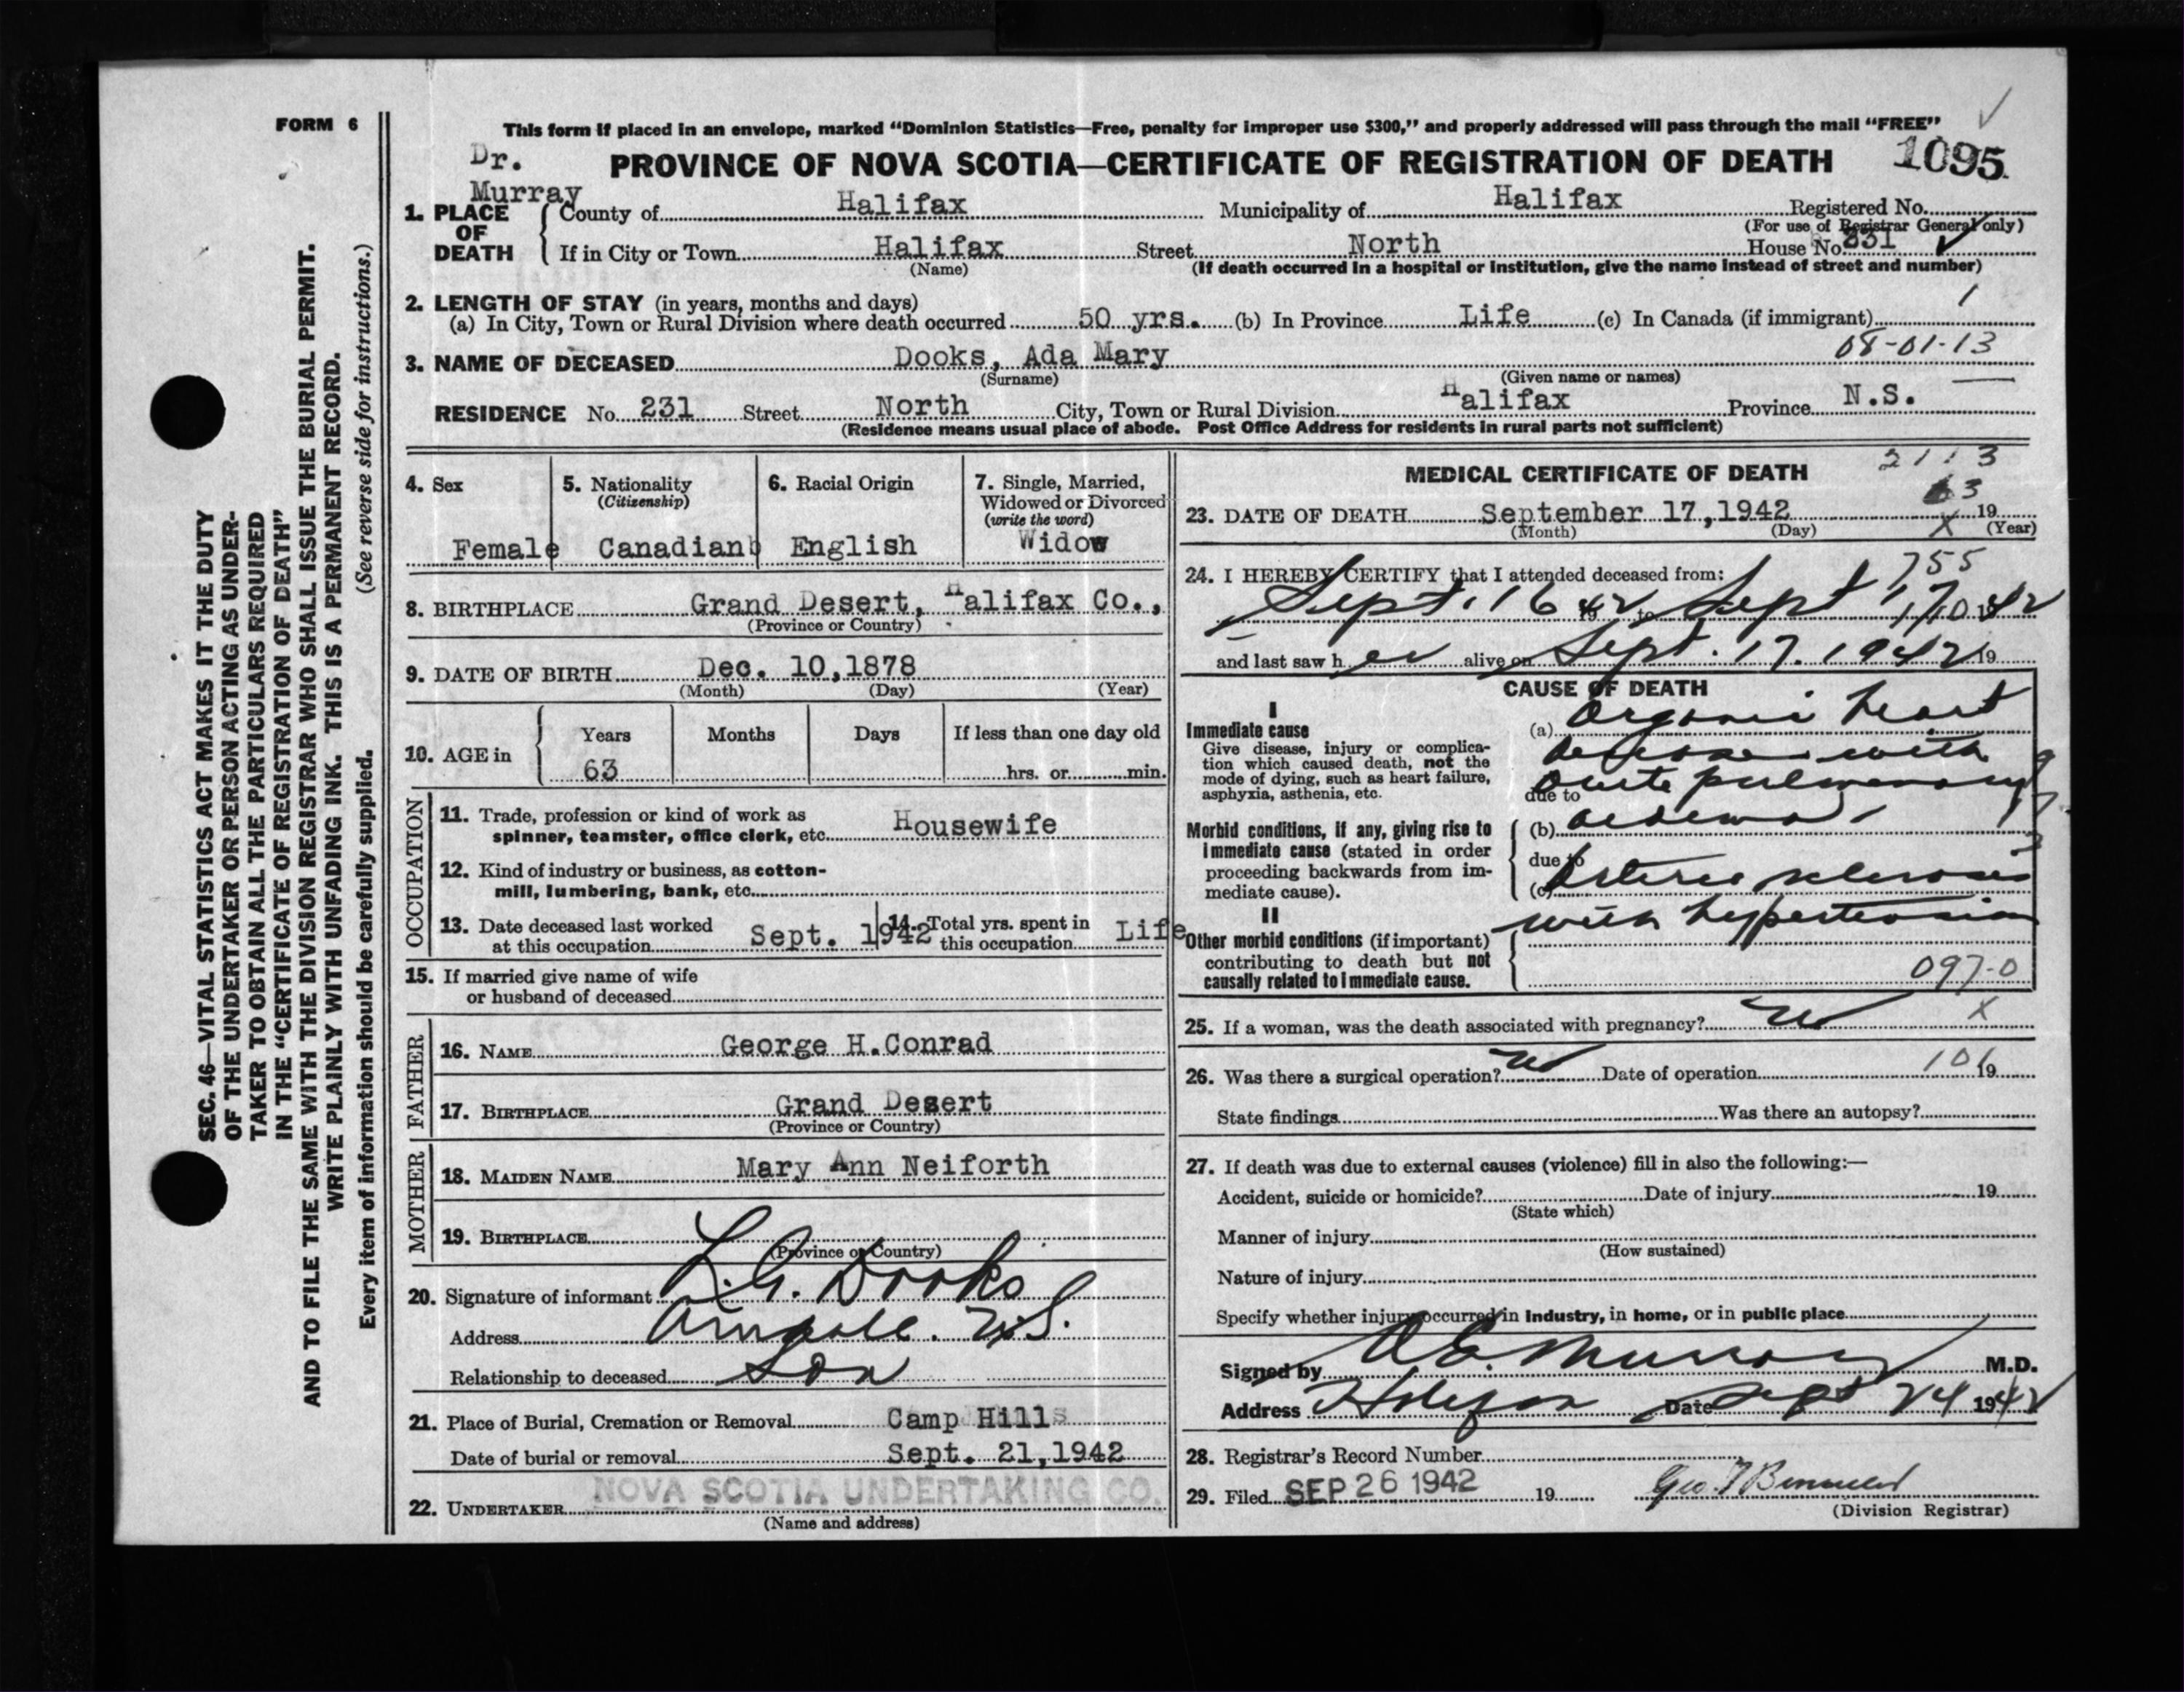 FORM 6
This form if placed in an envelope, marked “Dominion Statistics—Free, penalty for improper use $300,” and properly addressed will pass through the mail “FREE”
Dr. Murray
PROVINCE OF NOVA SCOTIA—CERTIFICATE OF REGISTRATION OF DEATH 1095
1. PLACE OF DEATH
County of Halifax Municipality of Halifax Registered No.
(For use of Registrar General only)
If in City or Town Halifax Street North House No. 231
(Name) (If death occurred in a hospital or institution, give the name instead of street and number)
2. LENGTH OF STAY (in years, months and days) 1
(a) In City, Town or Rural Division where death occurred 50 yrs. (b) In Province Life (c) In Canada (if immigrant)
08-01-13
3. NAME OF DECEASED Dooks, Ada Mary
(Surname) (Given name or names)
RESIDENCE No. 231 Street North City, Town or Rural Division Halifax Province N.S.
(Residence means usual place of abode. Post Office Address for residents in rural parts not sufficient)
4. Sex
Female
5. Nationality
(Citizenship)
Canadian
6. Racial Origin
English
7. Single, Married, Widowed or Divorced
(write the word)
Widow
8. BIRTHPLACE Grand Desert, Halifax Co.,
(Province or Country)
9. DATE OF BIRTH Dec. 10,1878
(Month) (Day) (Year)
10. AGE in Years Months Days If less than one day old
63 hrs. or min.
OCCUPATION
11. Trade, profession or kind of work as
spinner, teamster, office clerk, etc. Housewife
12. Kind of industry or business, as cotton-
mill, lumbering, bank, etc.
13. Date deceased last worked
at this occupation Sept. 1942
14. Total yrs. spent in
this occupation Life
15. If married give name of wife
or husband of deceased
FATHER
16. NAME George H.Conrad
17. BIRTHPLACE Grand Desert
(Province or Country)
MOTHER
18. MAIDEN NAME Mary Ann Neiforth
19. BIRTHPLACE
(Province or Country)
20. Signature of informant L.G. Dooks
Address Armdale. N.S.
Relationship to deceased Son
21. Place of Burial, Cremation or Removal Camp Hill
Date of burial or removal Sept. 21,1942
22. UNDERTAKER NOVA SCOTIA UNDERTAKING CO.
(Name and address)
MEDICAL CERTIFICATE OF DEATH
63
23. DATE OF DEATH September 17,1942 19
(Month) (Day) (Year)
x
24. I HEREBY CERTIFY that I attended deceased from: 755
Sept. 16 1942 to Sept 17 1942
and last saw her alive on Sept. 17. 1942 19
CAUSE OF DEATH
I
Immediate cause
Give disease, injury or complica-
tion which caused death, not the
mode of dying, such as heart failure,
asphyxia, asthenia, etc.
(a) Organic heart
disease with
due to acute pulmonary
Morbid conditions, if any, giving rise to
immediate cause (stated in order
proceeding backwards from im-
mediate cause).
(b) oedema
due to
(c) Arterio sclerosis
with hypertension
II
Other morbid conditions (if important)
contributing to death but not
causally related to immediate cause.
097-0
25. If a woman, was the death associated with pregnancy? no x
26. Was there a surgical operation? no Date of operation 19
106
State findings Was there an autopsy?
27. If death was due to external causes (violence) fill in also the following:—
Accident, suicide or homicide? Date of injury 19
(State which)
Manner of injury
(How sustained)
Nature of injury
Specify whether injury occurred in industry, in home, or in public place
Signed by Murray M.D.
Address Halifax Date Sept 24 1942
28. Registrar's Record Number
29. Filed SEP 26 1942 19
(Division Registrar)
SEC. 46—VITAL STATISTICS ACT MAKES IT THE DUTY
OF THE UNDERTAKER OR PERSON ACTING AS UNDER-
TAKER TO OBTAIN ALL THE PARTICULARS REQUIRED
IN THE “CERTIFICATE OF REGISTRATION OF DEATH”
AND TO FILE THE SAME WITH THE DIVISION REGISTRAR WHO SHALL ISSUE THE BURIAL PERMIT.
WRITE PLAINLY WITH UNFADING INK. THIS IS A PERMANENT RECORD.
Every item of information should be carefully supplied. (See reverse side for instructions.)